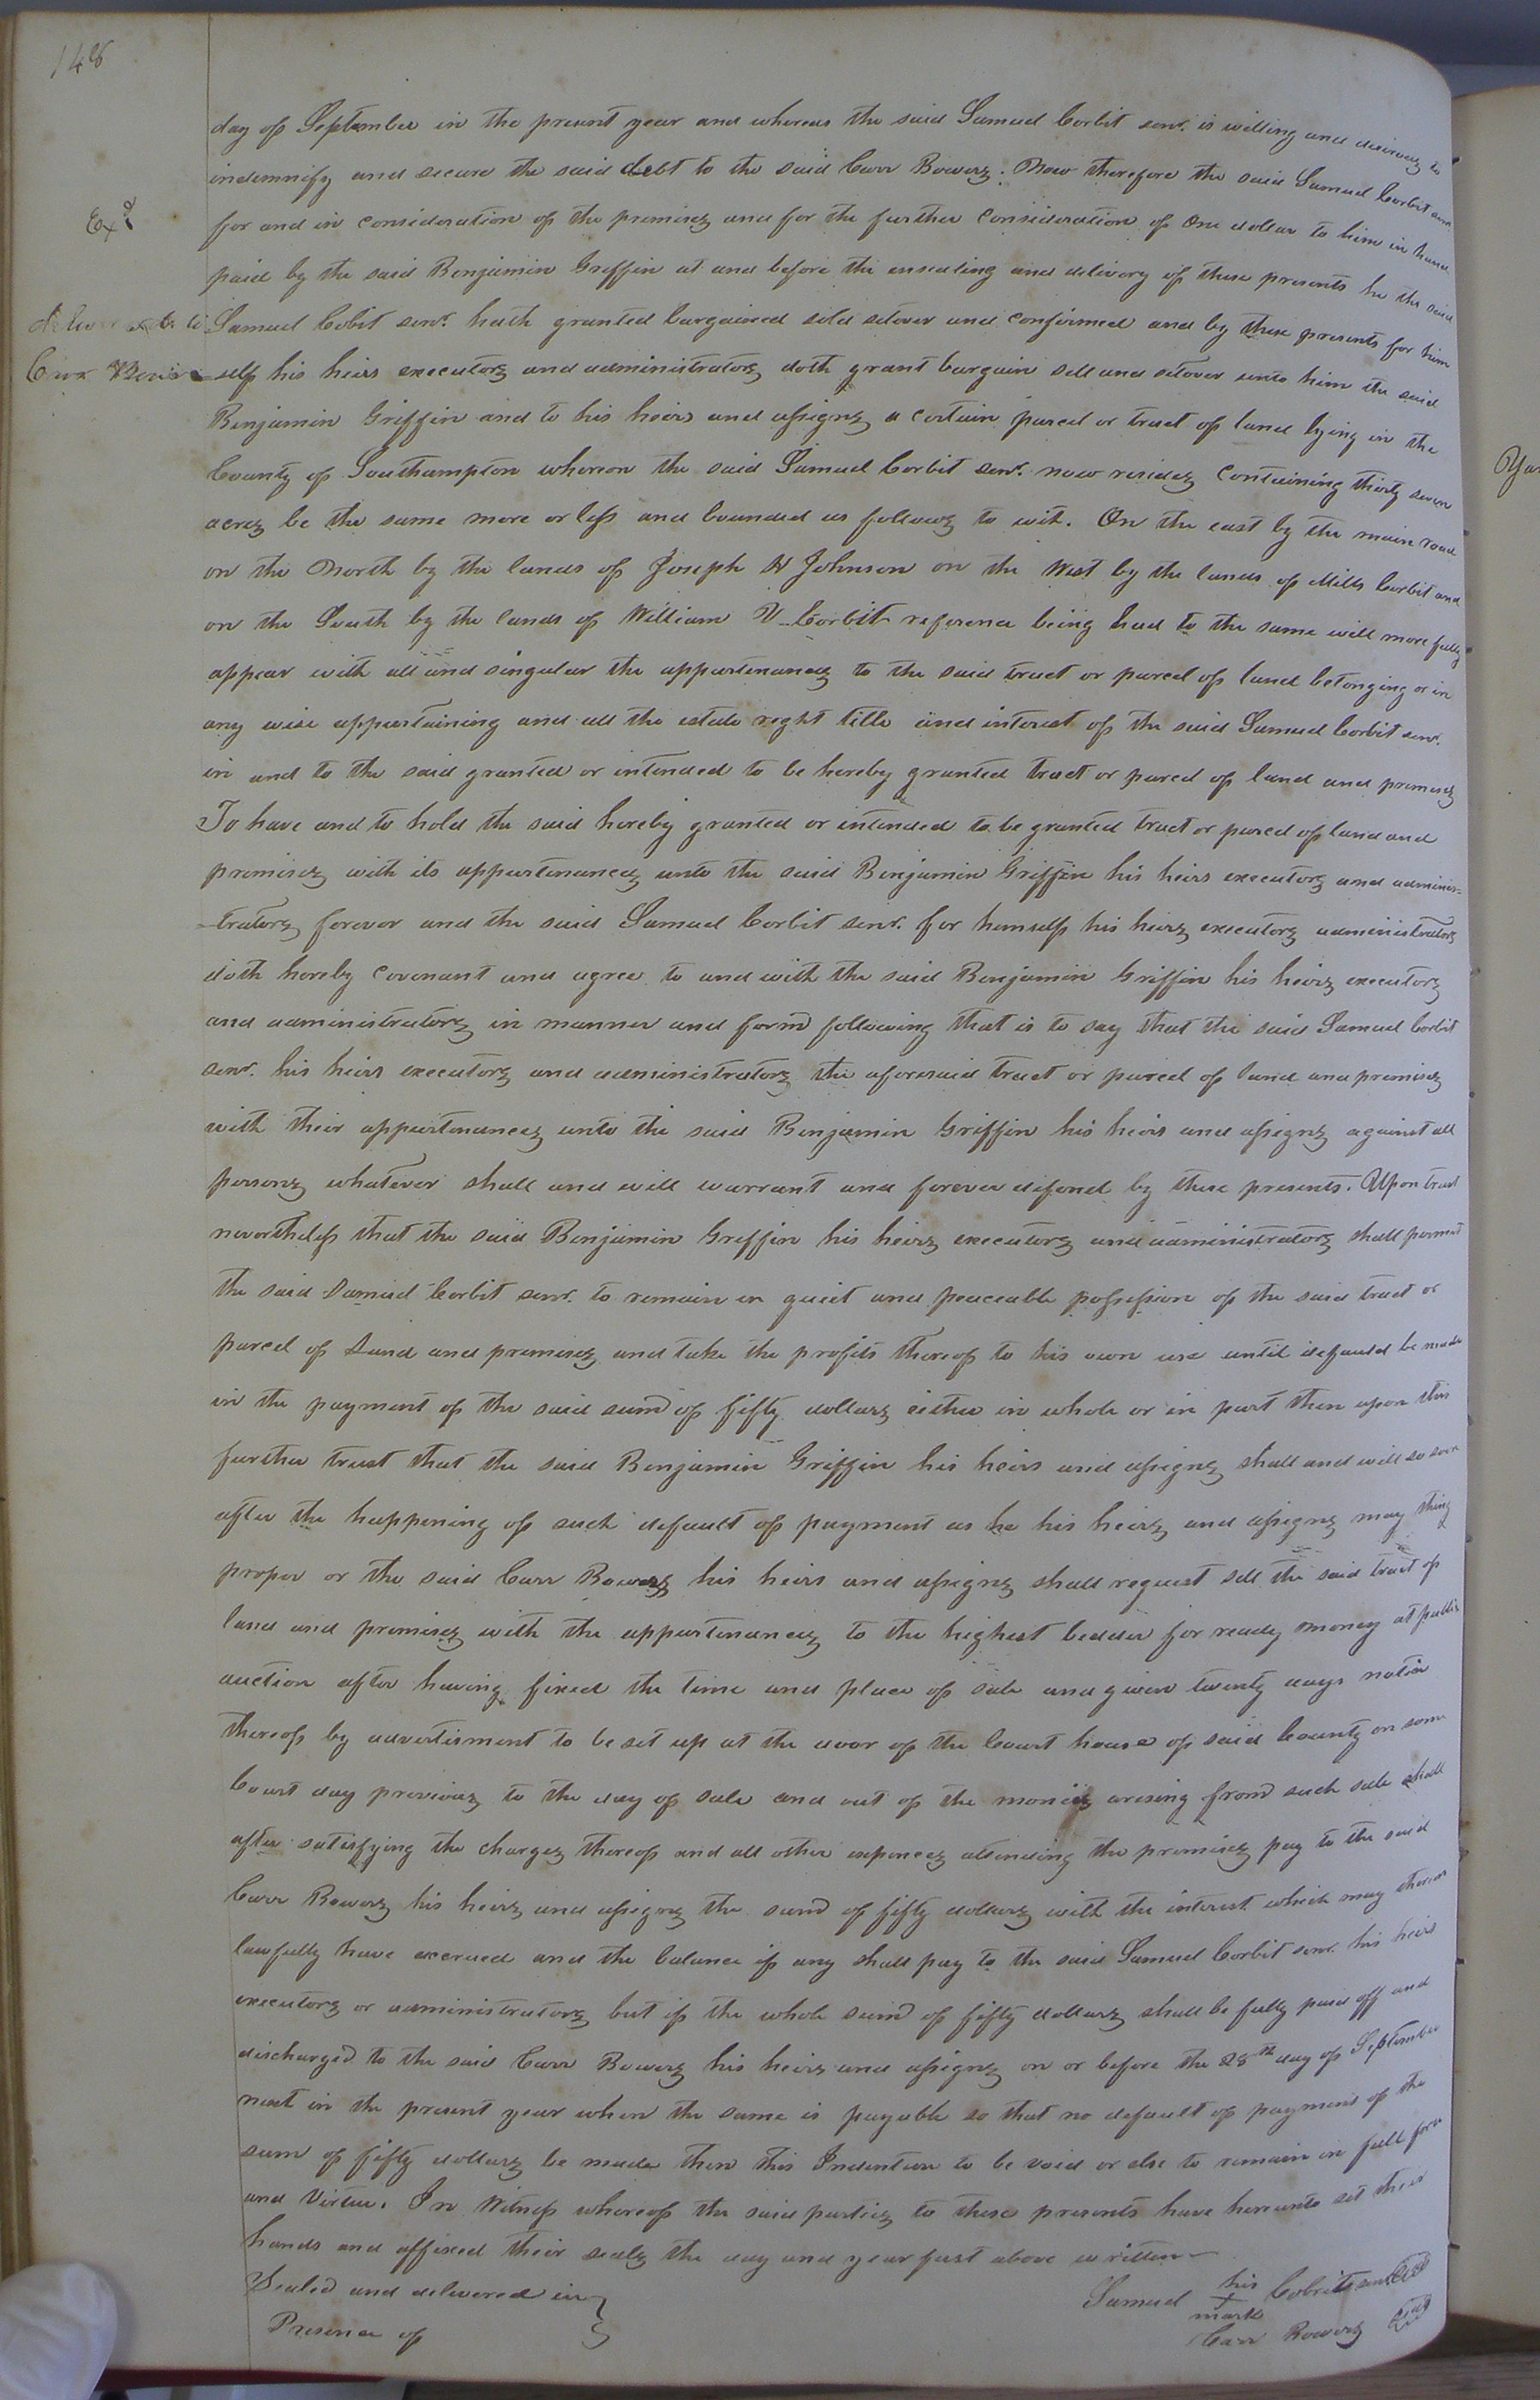 148
day of September in the present year and whereas the said Samuel Corbit senr. is willing and desirous to
indemnify and secure the said debt to the said Carr Bowers. Now therefore the said Samuel Corbit senr.
Exd
for and in consideration of the premises and for the further consideration of One dollar to him in hand
paid by the said Benjamin Griffin at and before the ensealing and delivery of these presents he the said
Samuel Cobit senr. hath granted bargained sold setover and confirmed and by these presents for him
Carr Bowers
self his heirs executors and administrators doth grant bargain sell and setover unto him the said
Benjamin Griffin and to his heirs and assigns a certain parcel or tract of land lying in the
County of Southampton whereon the said Samuel Corbit senr. now resides containing thirty seven
acres be the same more or less and bounded as follows to wit. On the east by the main road
on the North by the lands of Joseph H Johnson on the West by the lands of Mills Corbit and
on the South by the lands of William V Corbit reference being had to the same will more fully
appear with all and singular the appurtenances to the said tract or parcel of land belonging or in
any wise appurtaining and all the estate right title and interest of the said Samuel Corbit senr.
in and to the said granted or intended to be hereby granted tract or parcel of land and premises
To have and to hold the said hereby granted or intended to be granted tract or parcel of land and
premises with its appurtenances unto the said Benjamin Griffin his heirs executors and adminis=
=trators forever and the said Samuel Corbit senr. for himself his heirs executors administrators
doth hereby covenant and agree to and with the said Benjamin Griffin his heirs executors
and administrators in manner and form following that is to say that the said Samuel Corbit
senr. his heirs executors and administrators the aforesaid tract or parcel of land and premises
with their appurtenances unto the said Benjamin Griffin his heirs and assigns against all
persons whatever shall and will warrant and forever defend by these presents. Upon trust
nevertheless that the said Benjamin Griffin his heirs executors and administrators shall permit
the said Samuel Corbit senr. to remain in quiet and peaceable possession of the said tract or
parcel of Land and premises and take the profits thereof to his own use until default be made
in the payment of the said sum of fifty dollars either in whole or in part then upon this
further trust that the said Benjamin Griffin his heirs and assigns shall and will so soon
after the happening of such default of payment as he his heirs and assigns may thing
proper or the said Carr Bowers his heirs and assigns shall request sell the said tract of
land and premises with the appurtenances to the highest bedder for ready money at public
auction after having fixed the time and place of sale and given twenty days notice
thereof by advertisment to be set up at the door of the Court house of said County on some
Court day previous to the day of sale and out of the monies arising from such sale shall
after satisfying the charges thereof and all other expences attending the premises pay to the said
Carr Bowers his heirs and assigns the sum of fifty dollars with the interest which may thereon
lawfully have accrued and the balance if any shall pay to the said Samuel Corbit senr. his heirs
executors or administrators but if the whole sum of fifty dollars shall be fully paid off and
discharged to the said Carr Bowers his heirs and assigns on or before the 28th day of September
next in the present year when the same is payable so that no default of payment of the
sum of fifty dollars be made then this Indenture to be void or else to remain in full force
and Virtue. In Witness whereof the said parties to these presents have hereunto set their
hands and affixed their seals the day and year first above written
Sealed and delivered in
Presence of
Samuel his + mark Cobrit senr. Seal
Carr Bowers Seal